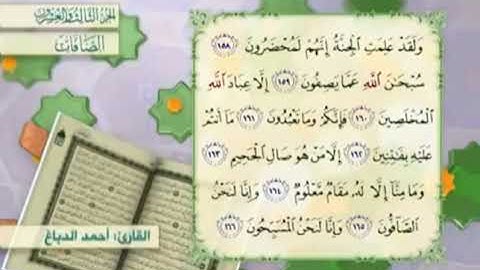 الجزء الثالث والعشرون
الصافات
وَلَقَدْ عَلِمَتِ الْجِنَّةُ إِنَّهُمْ لَمُحْضَرُونَ ١٥٨
سُبْحَانَ اللَّهِ عَمَّا يَصِفُونَ ١٥٩ إِلَّا عِبَادَ اللَّهِ
الْمُخْلَصِينَ ١٦٠ فَإِنَّكُمْ وَمَا تَعْبُدُونَ ١٦١ مَا أَنتُمْ
عَلَيْهِ بِفَاتِنِينَ ١٦٢ إِلَّا مَنْ هُوَ صَالِ الْجَحِيمِ ١٦٣
وَمَا مِنَّا إِلَّا لَهُ مَقَامٌ مَّعْلُومٌ ١٦٤ وَإِنَّا لَنَحْنُ
الصَّافُّونَ ١٦٥ وَإِنَّا لَنَحْنُ الْمُسَبِّحُونَ ١٦٦
القارئ: أحمد الدباغ